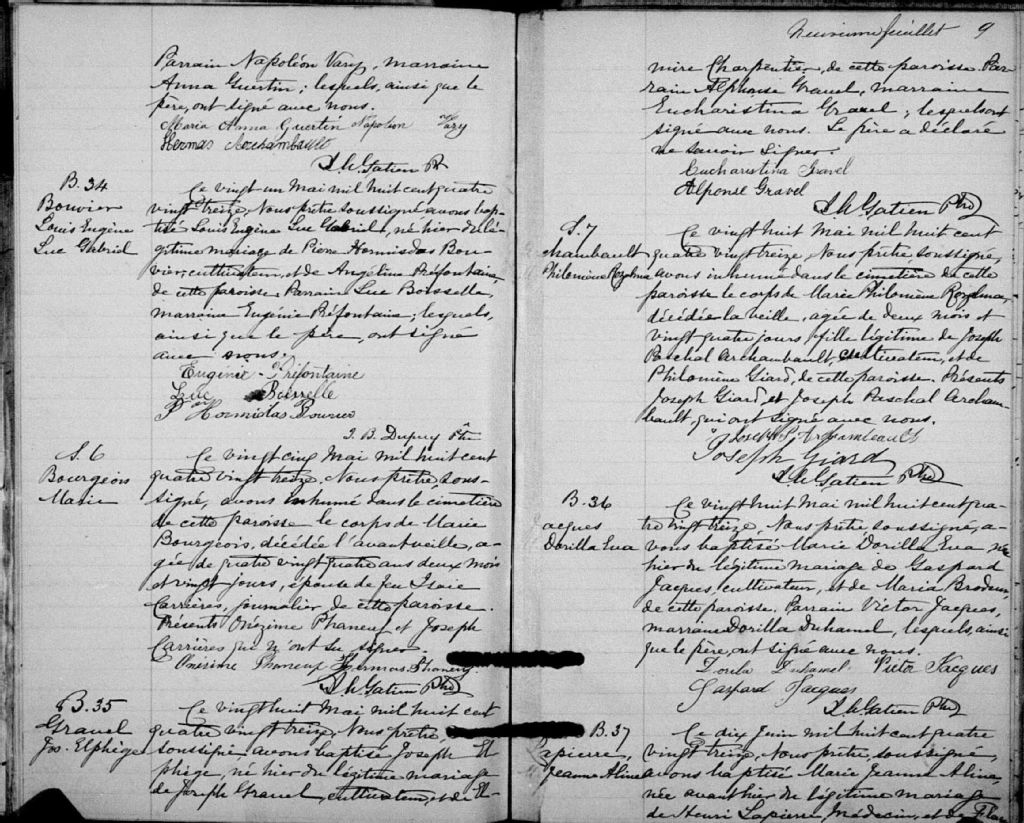 Parrain Napoléon Vary, marraine
Anna Guertin; lesquels, ainsi que le
père, ont signé avec nous.
Maria Anna Guertin Napoléon Vary
Hermas Archambault
Gatien Ptr
B. 34
Bouvier
Louis Eugène
Luc Gabriel
Ce vingt un Mai mil huit cent quatre
vingt treize, Nous prêtre soussigné avons bap-
tisé Louis Eugène Luc Gabriel, né hier du lé-
gitime mariage de Pierre Hormisdas Bou-
vier, cultivateur, et de Angélina Préfontaine,
de cette paroisse. Parrain Luc Boisselle,
marraine Eugénie Préfontaine; lesquels,
ainsi que le père, ont signé
avec nous.
Eugénie Préfontaine
Luc
P Hormisdas Bouvier
J. B. Dupuy Ptre
S. 6
Bourgeois
Marie
Ce vingt cinq Mai mil huit cent
quatre vingt treize, Nous prêtre sous-
signé, avons inhumé dans le cimetière
de cette paroisse le corps de Marie
Bourgeois, décédée l'avant veille, a-
gée de quatre vingt quatre ans deux mois
et vingt jours, épouse de feu Isaie
Carrières, journalier de cette paroisse.
Présents Onézime Phaneuf et Joseph
Carrières qui n'ont su signer.
Onésime Phaneuf Hermas Phaneuf
Gatien Ptre
B. 35
Gravel
Jos. Elphège
Ce vingt huit Mai mil huit cent
quatre vingt treize, Nous prêtre
soussigné, avons baptisé Joseph El
phège, né hier du légitime mariage
de Joseph Gravel, cultivateur, et de El-
Neuvième feuillet 9
mire Charpentier, de cette paroisse. Par
rain Alphonse Gravel, marraine
Eucharistina Gravel; lesquels ont
signé avec nous. Le père a déclaré
ne savoir signer.
Eucharistina Gravel
Alponse Gravel
Gatien Ptre
S. 7
chambault
Philomène Rozelma
Ce vingt huit Mai mil huit cent
quatre vingt treize, Nous prêtre soussigné,
avons inhumé dans le cimetière de cette
paroisse le corps de Marie Philomène Rozelma,
décédée la veille, agée de deux mois et
vingt quatre jours, fille légitime de Joseph
Paschal Archambault, cultivateur, et de
Philomène Giard, de cette paroisse. Présents
Joseph Giard, et Joseph Paschal Archam-
bault, qui ont signé avec nous.
Joseph P. Archambeault
Joseph Giard
Gatien Ptre
B. 36
acques
Dorilla Eva
Ce vingt huit Mai mil huit cent qua-
tre vingt treize, Nous prêtre soussigné, a-
vons baptisé Marie Dorilla Eva, née
hier du légitime mariage de Gaspard
Jacques, cultivateur, et de Maria Brodeur,
de cette paroisse. Parrain Victor Jacques,
marraine Dorilla Duhamel, lesquels, ainsi
que le père, ont signé avec nous.
Duhamel Victor Jacques
Gaspard Jacques
Gatien Ptre
B. 37
Lapierre,
Jeanne Alina
Ce dix Juin mil huit cent quatre
vingt treize, Nous prêtre, soussigné
avons baptisé Marie Jeanne Alina,
née avant hier du légitime mariage
de Henri Lapierre, Médecin, et de